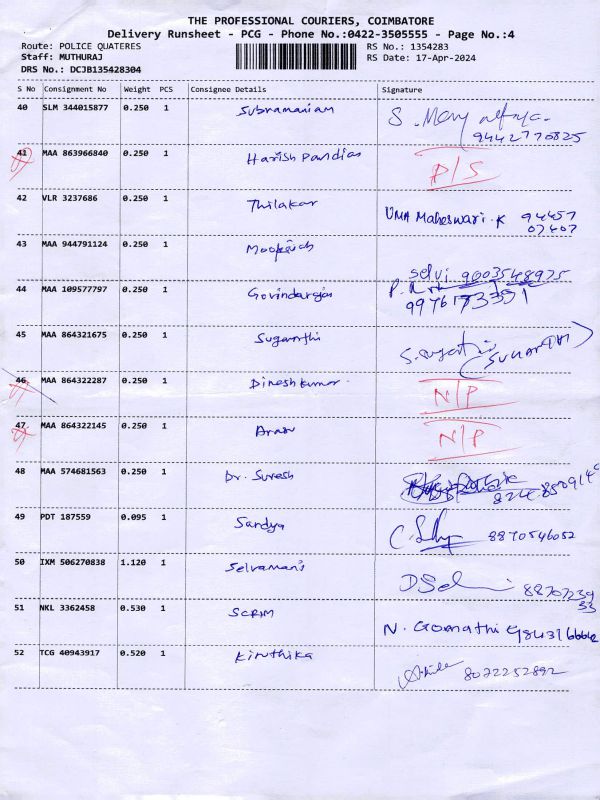 THE PROFESSIONAL COURIERS, COIMBATORE
Delivery Runsheet - PCG - Phone No.:0422-3505555 - Page No.:4
Route: POLICE QUATERES RS No.: 1354283
Staff: MUTHURAJ RS Date: 17-Apr-2024
DRS No.: DCJB135428304
S No Consignment No Weight PCS Consignee Details Signature
40 SLM 344015877 0.250 1 Subramaniam S. Mary
9442770825
41 MAA 863966840 0.250 1 Harish Pandian D/S
42 VLR 3237686 0.250 1 Thilakar UMA Maheswari.K 94457
07407
43 MAA 944791124 0.250 1
selvi 9003548975
44 MAA 109577797 0.250 1 Govindaraja P.
9976173351
45 MAA 864321675 0.250 1 Suganthi
46 MAA 864322287 0.250 1 Dinesh kumar N/P
47 MAA 864322145 0.250 1 Aran N/P
48 MAA 574681563 0.250 1 Dr. Suresh
49 PDT 187559 0.095 1 Sandya 8870546052
50 IXM 506270838 1.120 1 Selvamani
51 NKL 3362458 0.530 1 SCRIM N. Gomathi
52 TCG 40943917 0.520 1 Kiruthika 8022252892